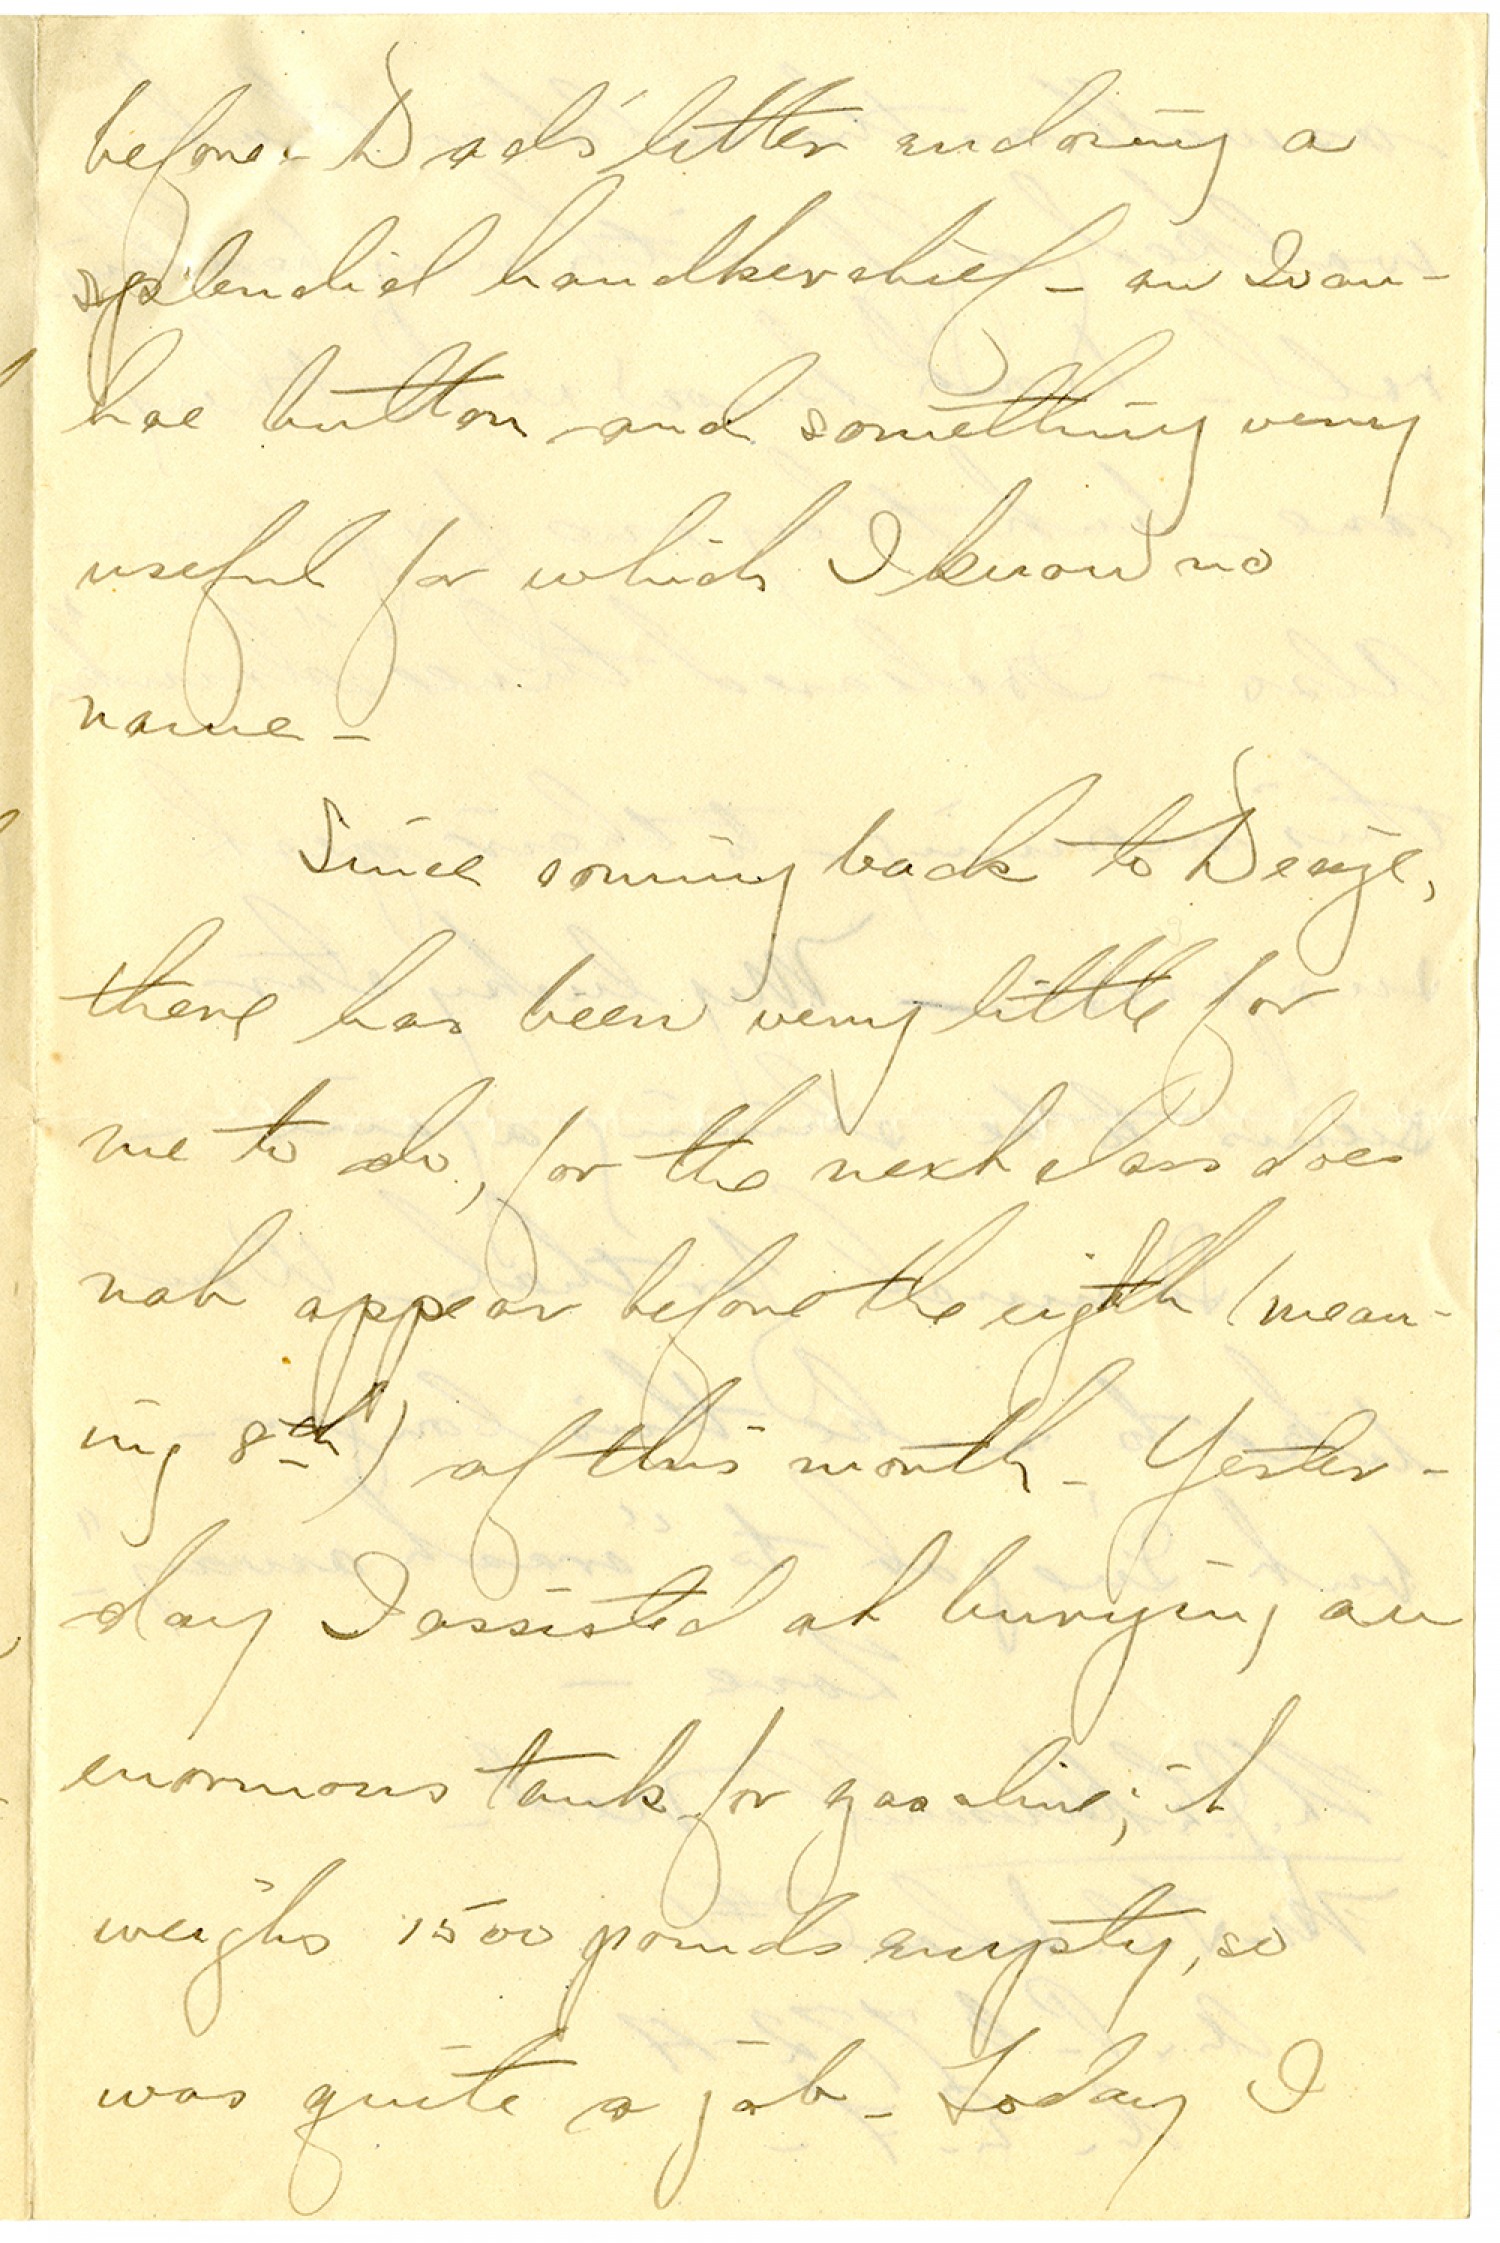 before - Dad's letter enclosing a
splendid handkerchief - an Ivan-
hoe button and something very
useful for which I know no
name -
Since coming back to Deuze,
there has been very little for
me to do, for the next class does
not appear before the eigth (mean-
ing 8th) of this month - Yester-
day I assisted at burying an
enormous tank for gasoline; it
weighs 1500 pounds empty, so
was quite a job - Today I